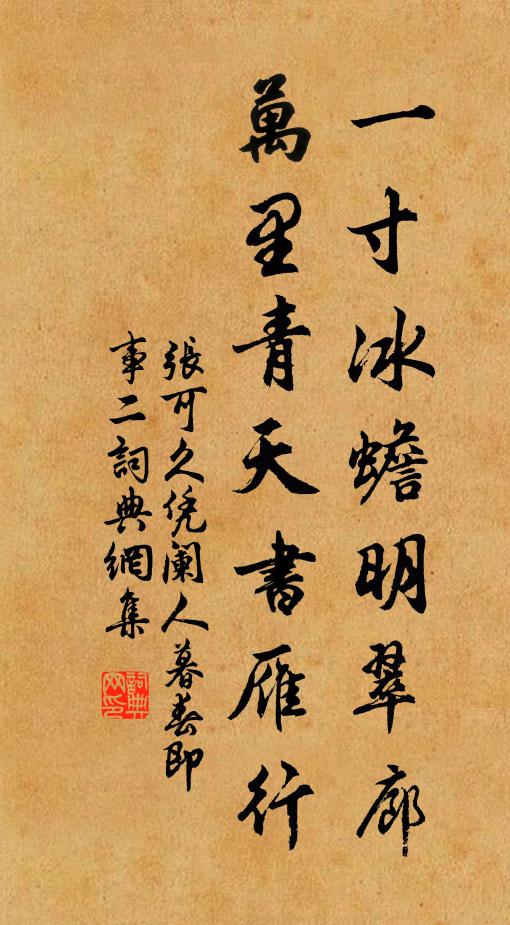 一寸冰蟾明翠廊
萬里青天書雁行
張可久凭闌人暮春即
事二詞典網集
詞典
网印